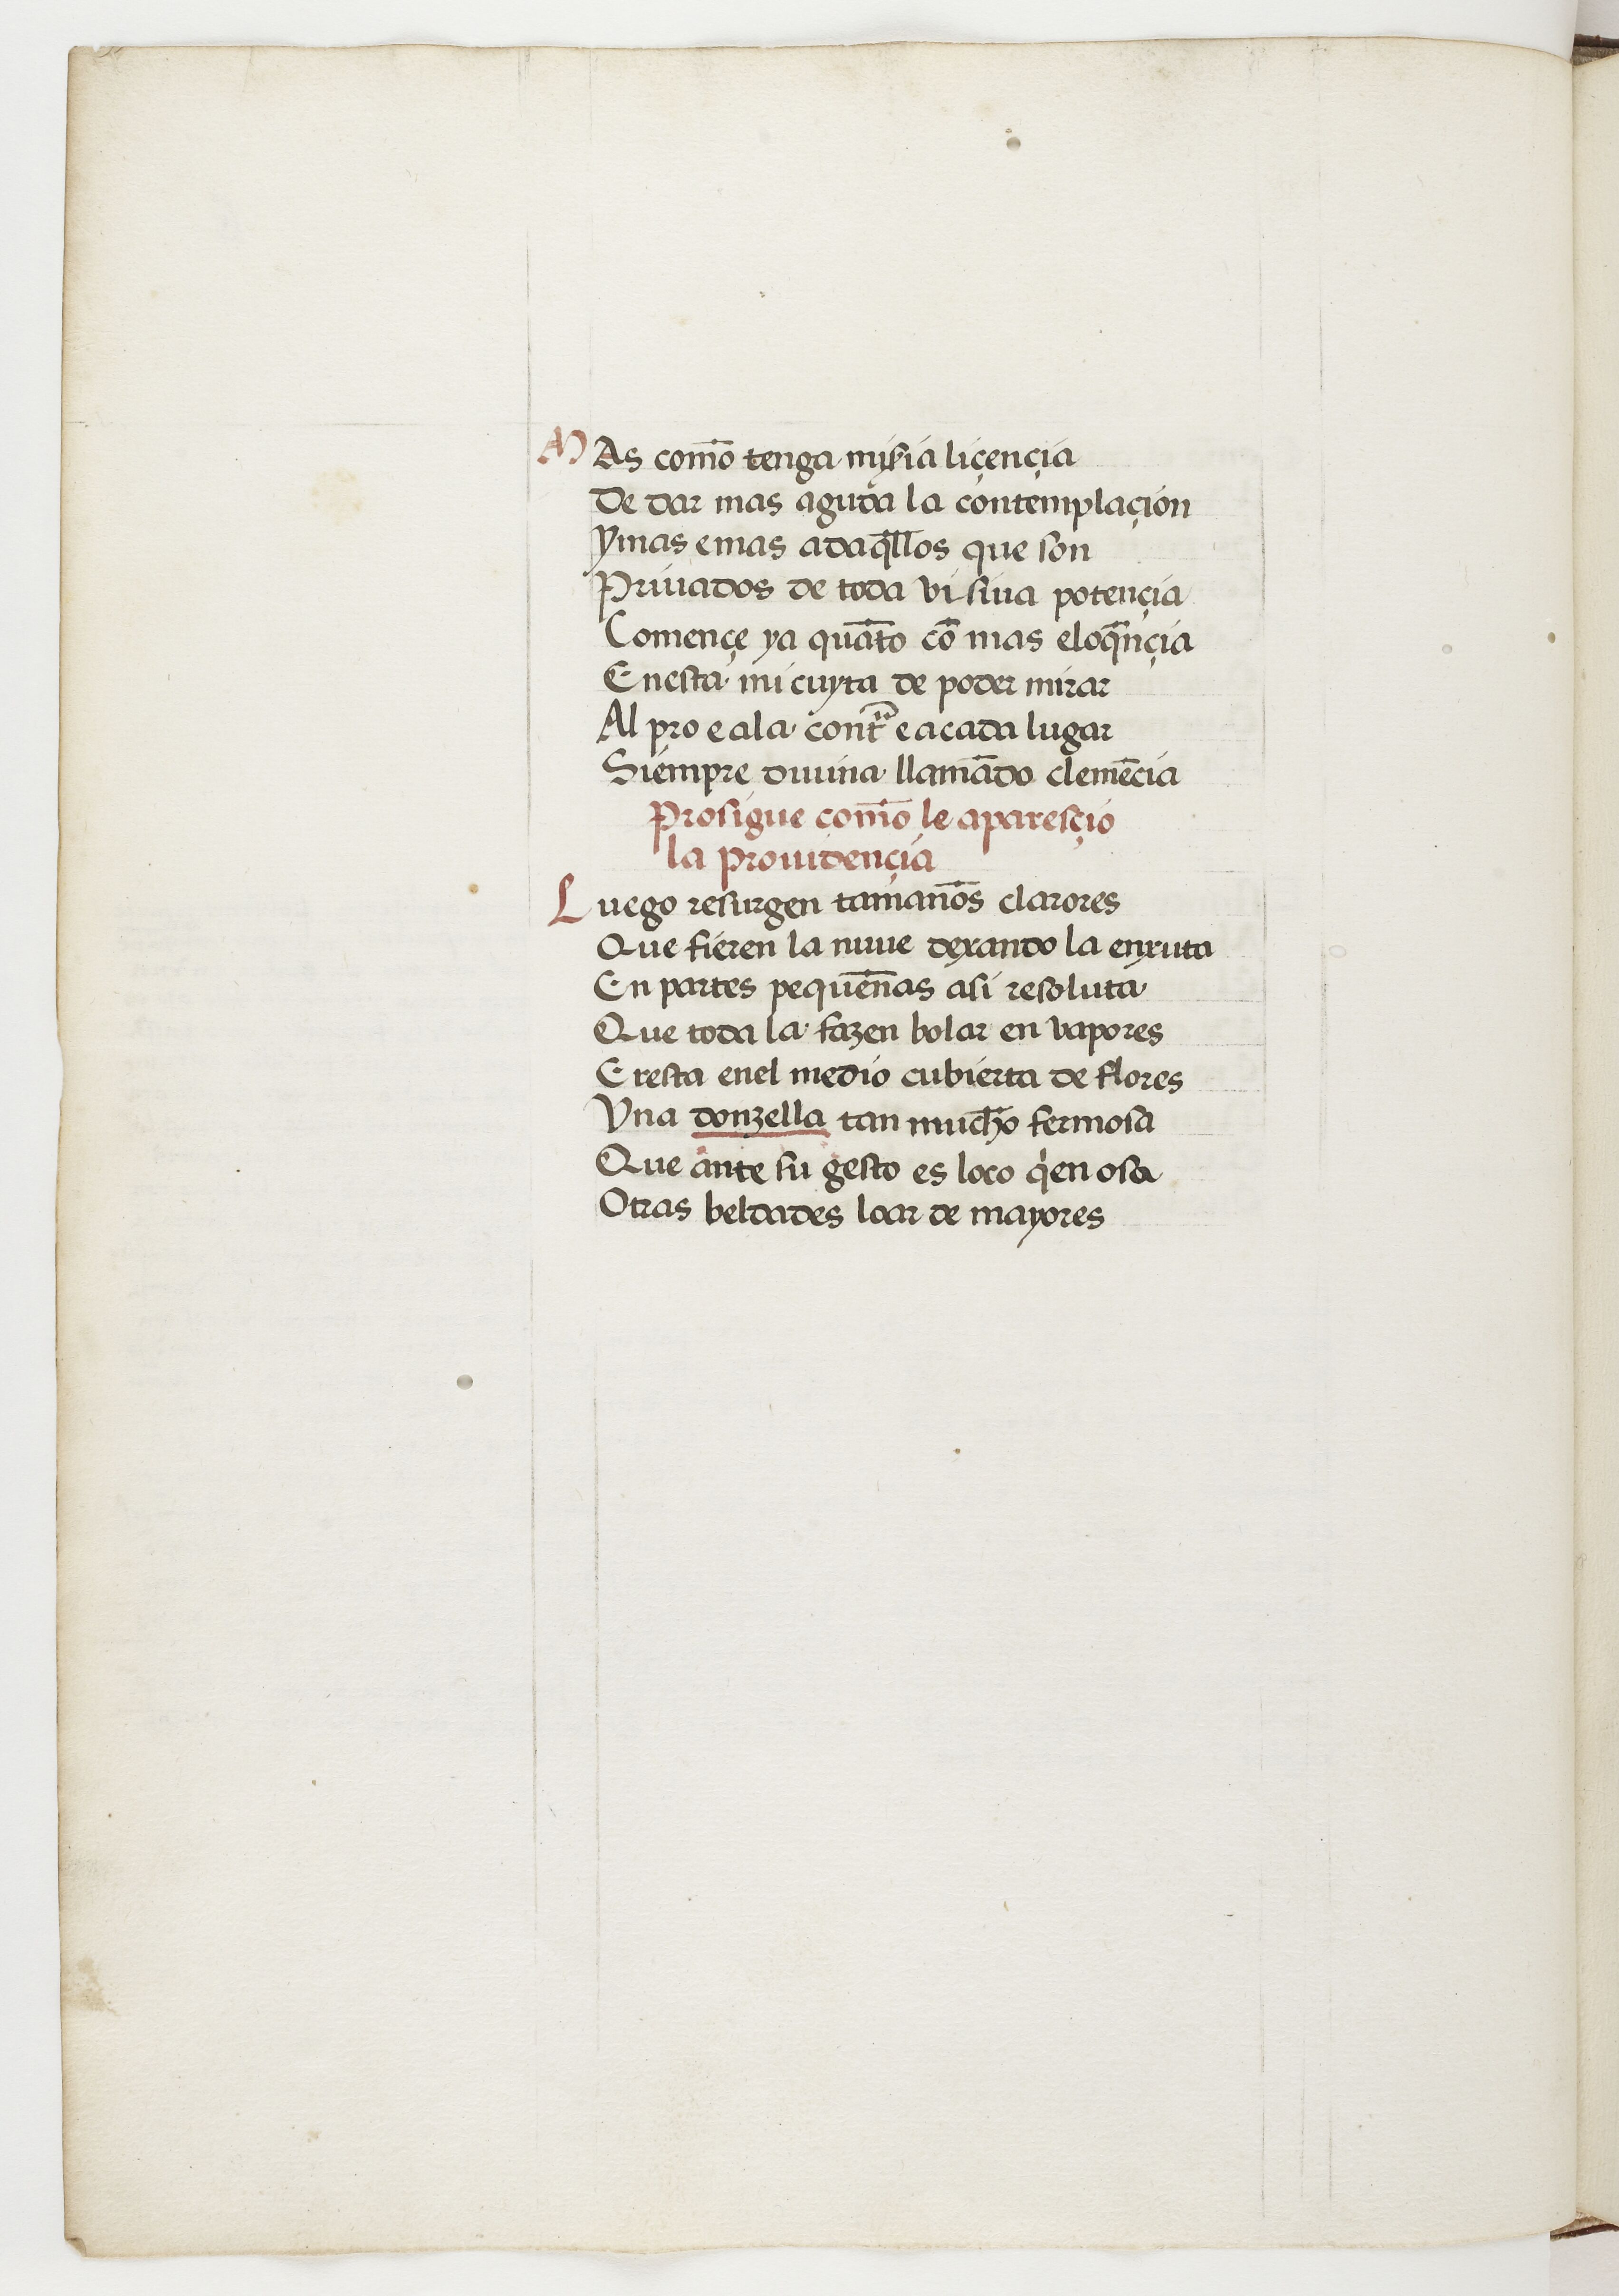 MAs com̃o tenga miſ͛ia liçençia
De dar mas aguda la contemplaçion
Ymas emas adaq̃llos que son
Priuados de toda vi siua potençia
Començe ya quãto cõ mas eloq̃nçia
Enesta mi cuyta de poder mirar
Al pro e ala contᷓ e acada lugar
Siempre diuina llamãdo clemẽcia
Prosigue com̃o le aparesçio
la prouidençia
Luego resurgen taman̄os clarores
Que fieren la nuue dexando la enxuta
En partes pequen̄as asi resoluta
Que toda la fazen bolar en vapores
E resta enel medio cubierta de flores
Vna donzella tan mucho fermosa
Que ante su gesto es loco qͥen osa
Otras beldades loar de mayores